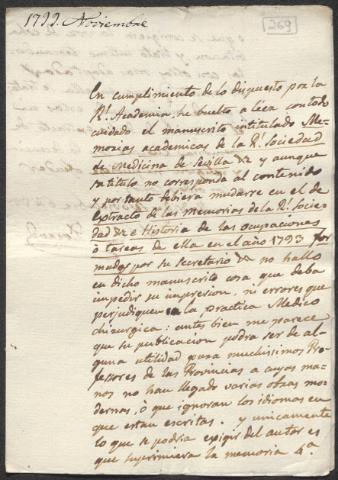 1799. Noviembre
269
En cumplimiento de lo dispuesto por la
Rl. Academia, he buelto a leer con todo
cuidado el manuscrito intitulado Me-
morias academicas de la Rl. Sociedad
de Medicina de Sevilla &a y aunque
su titulo no corresponda al contenido
y por tanto debiera mudarse en el de
Extracto de las Memorias de la Rl. Socie-
dad &a e Historia de las ocupaciones
ò tareas de ella en el año 1793 for-
madas por su Secretario &a no hallo
en dicho manuscrito cosa que deba
impedir su impresion, ni errores que
perjudiquen a la practica Medico
chirurgica: antes bien me parece
que su publicacion podra ser de al-
guna utilidad para muchissimos Pro-
fesores de las Provincias a cuyas ma-
nos no han llegado varias obras mo-
dernas, ò que ignoran los idiomas en
que estan escritas. y unicamente
lo que se podria exigir del autor es
que suprimiera la memoria 4.a